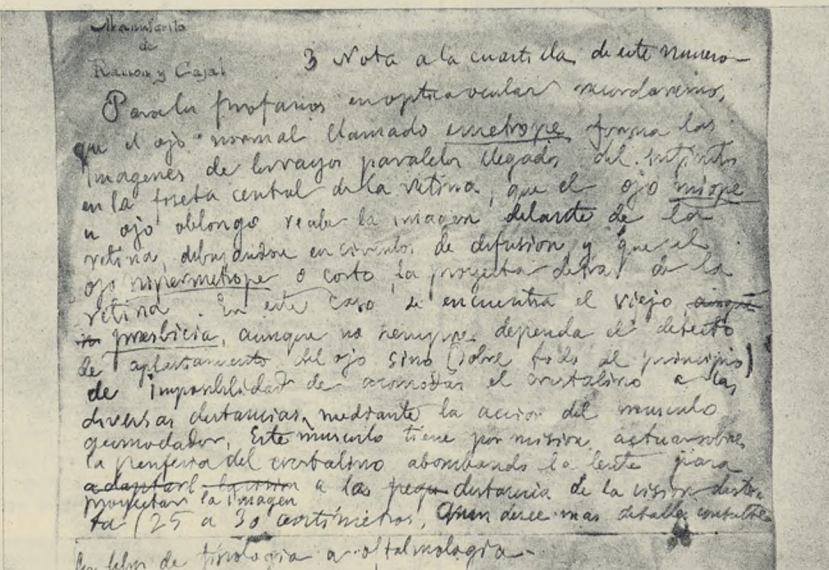 Manuscrito
de
Ramon y Cajal
3 Nota a la cuartilla de este numero
Para los profanos en optica ocular recordaremos,
que el ojo normal llamado emetrope forma las
imagenes de los rayos paralelos llegados del infinito
en la foseta central de la retina, que el ojo miope
u ojo oblongo recibe la imagen delante de la
retina, dibujandose en circulos de difusion y que el
ojo hipermetrope o corto la proyecta detras de la
retina. En este caso se encuentra el viejo, aunque
presbicia, aunque no siempre dependa el defecto
de aplastamiento del ojo sino (sobre todo al principio)
de imposibilidad de acomodar el cristalino a las
diversas distancias, mediante la accion del musculo
acomodador. Este musculo tiene por mision actuar sobre
la periferia del cristalino abombando la lente para
a las distancia de la vision
proyectar la imagen
(25 a 30 centimetros. Quien desee mas detalles consulte
los libros de fisiologia o oftalmologia.